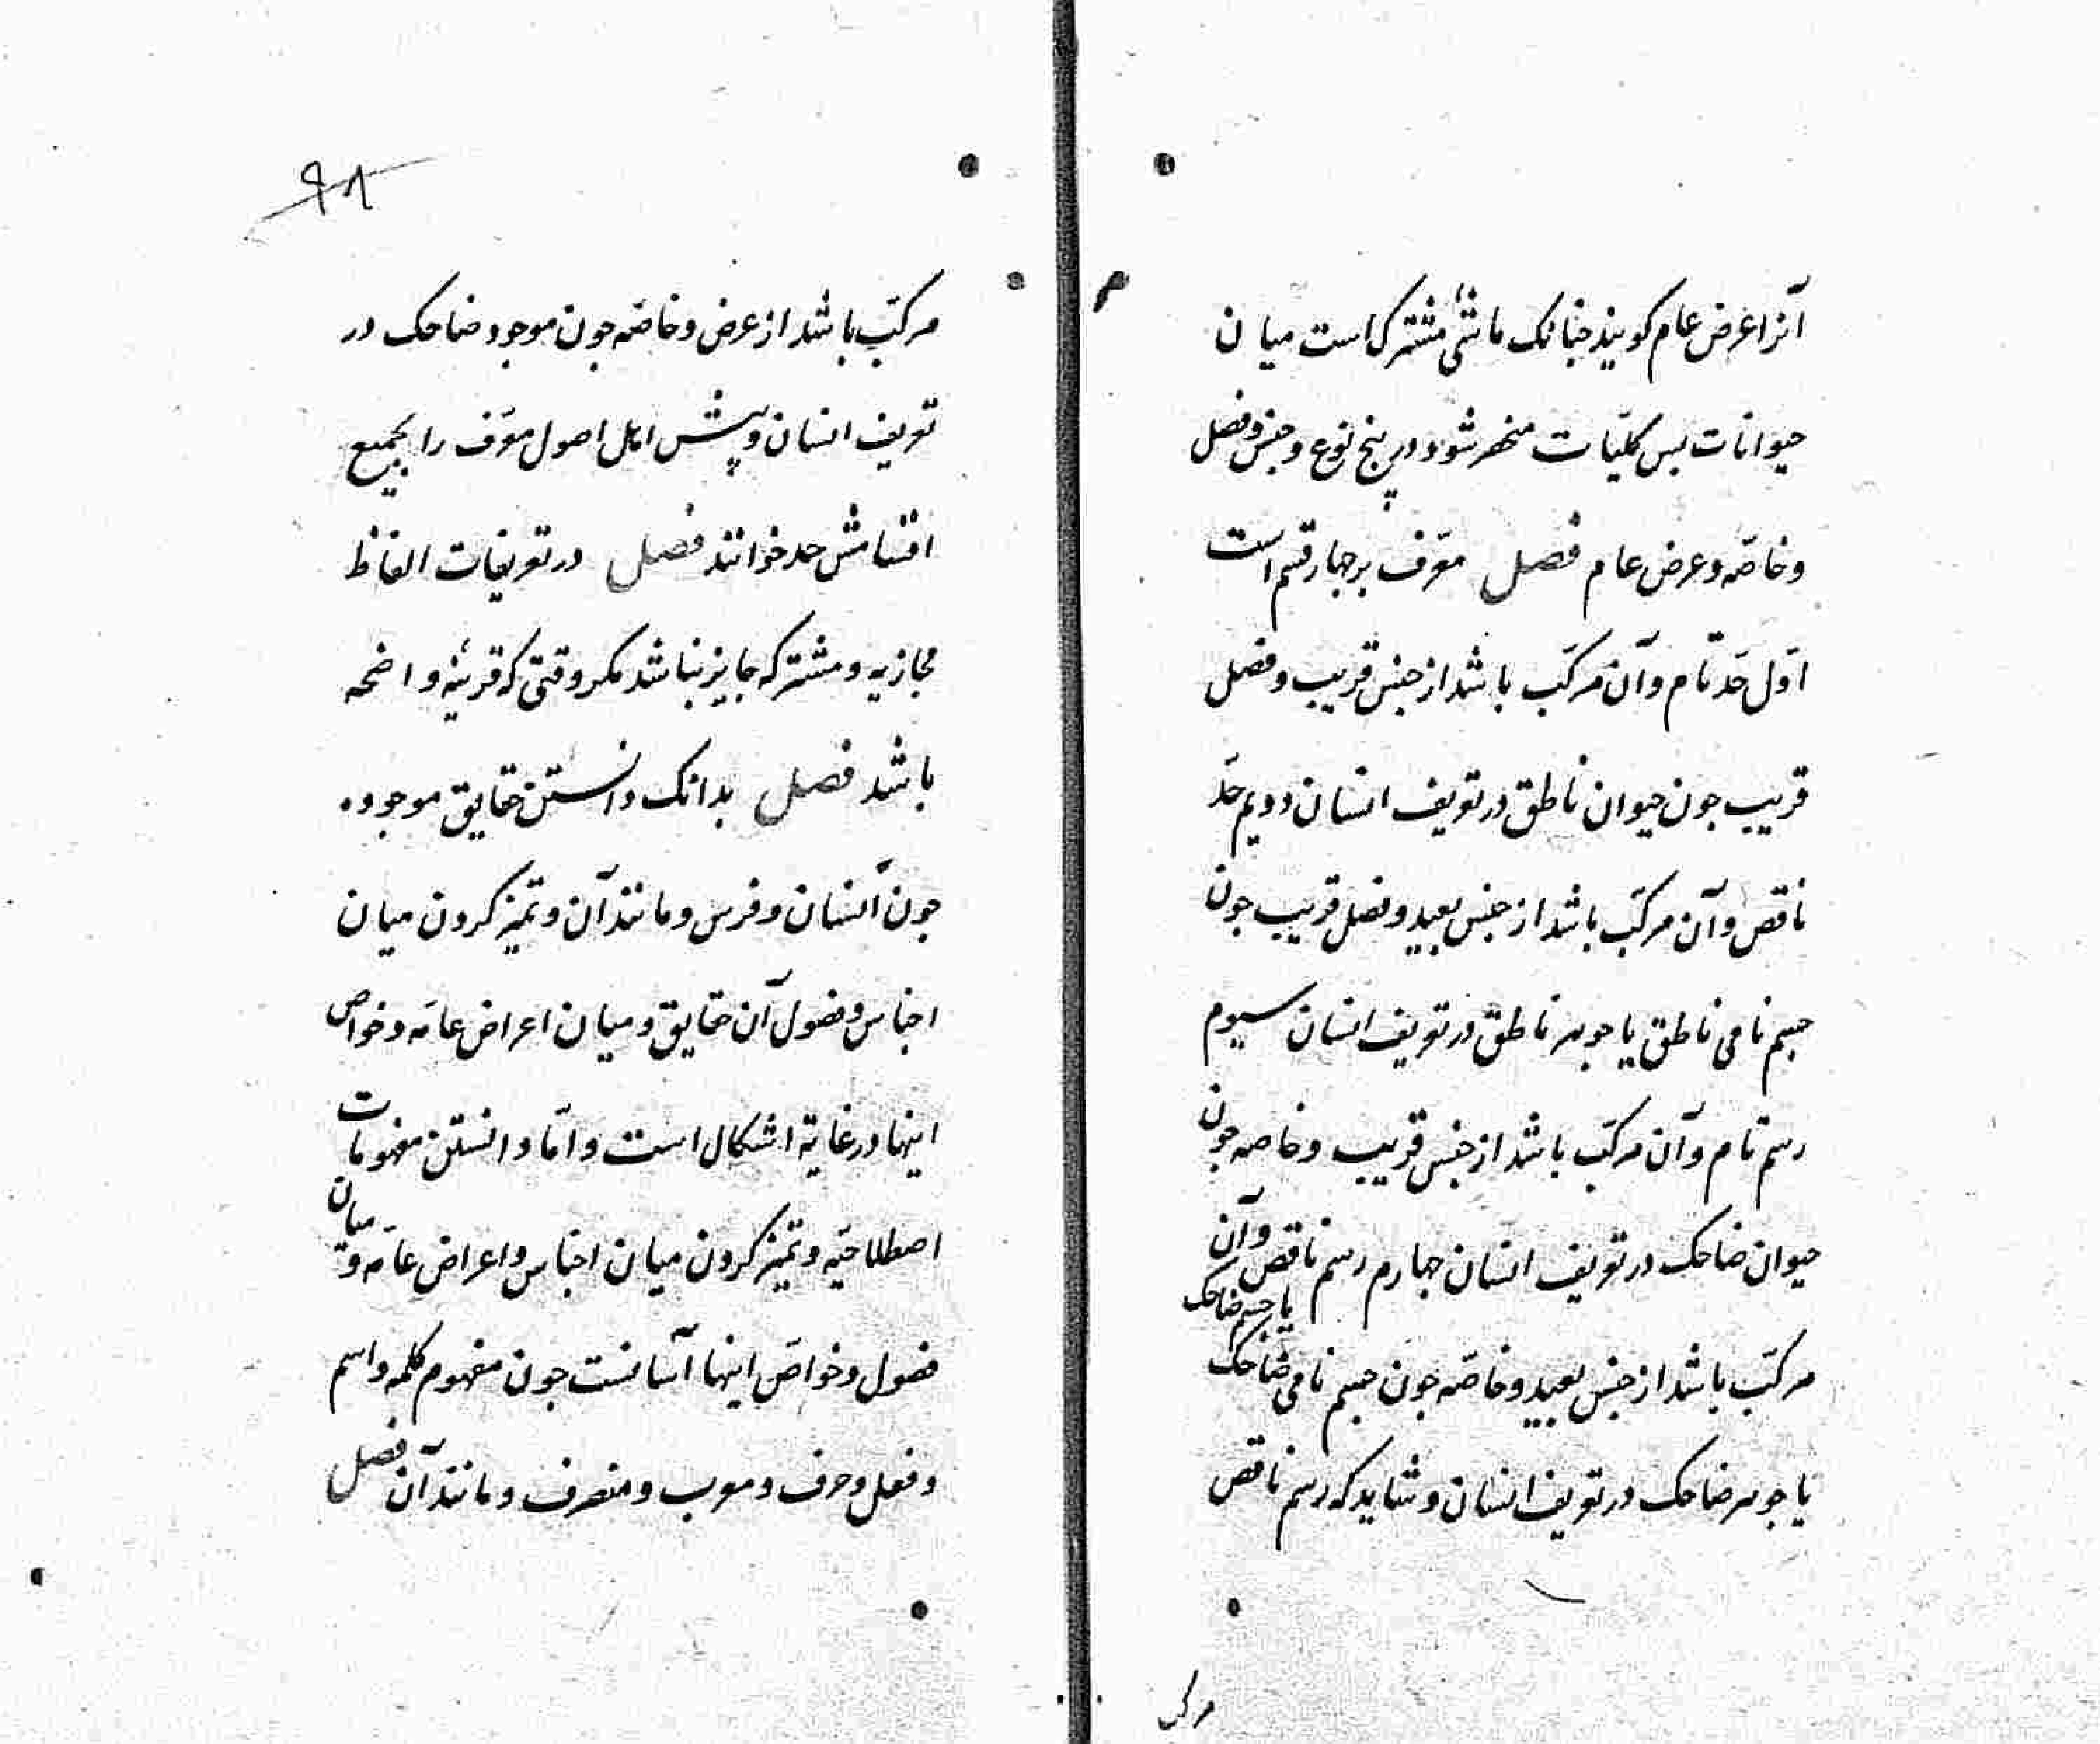 آنرا عرض عام کویند جنانک ماشی مشترک است میان
حیوانات بس کلیّات منحصر شود در پنج نوع و جنس و فصل
و خاصّه و عرض عام فصل معّرف بر جهار قسم است
اوّل حّد تام و آن مرکّب باشد از جنس قریب و فصل
قریب جون حیوان ناطق در تعریف انسان دویم حّد
ناقص و آن مرکّب باشد از جنس بعید و فصل قریب جون
جسم نامی ناطق یا جوهر ناطق در تعریف انسان سیوم
رسم تام و آن مرکّب باشد از جنس قریب و خاصه جون
حیوان ضاحک در تعریف انسان جهارم رسم ناقص و آن
یا جسم ضاحک
مرکّب باشد از جنس بعید و خاصّه جون جسم نامی ضاحک
یا جوهر ضاحک در تعریف انسان و شاید که رسم ناقص
مرکب
۹۸
مرکّب باشد از عرض و خاصّه جون موجود ضاحک در
تعریف انسان و پیش اهل اصول معّرف را بجمیع
اقسامش حد خوانند فصل در تعریفات الفاظ
مجازیه و مشترکه جایز نباشد مکر وقتی که قرینهٔ واضحه
باشد فصل بدانک دانستن حقایق موجوده
جون انسان و فرس و مانند آن و تمیز کردن میان
اجناس و فصول آن حقایق و میان اعراض عامّه و خواص
اینها در غایة اشکال است و امّا دانستن مفهومات
اصطلاحیّه و تمیز کردن میان اجناس و اعراض عامّه و میان
فصول و خواصّ اینها آسانست جون مفهوم کلمه و اسم
و فعل و حرف و معرب و منصرف و مانند آن فصل